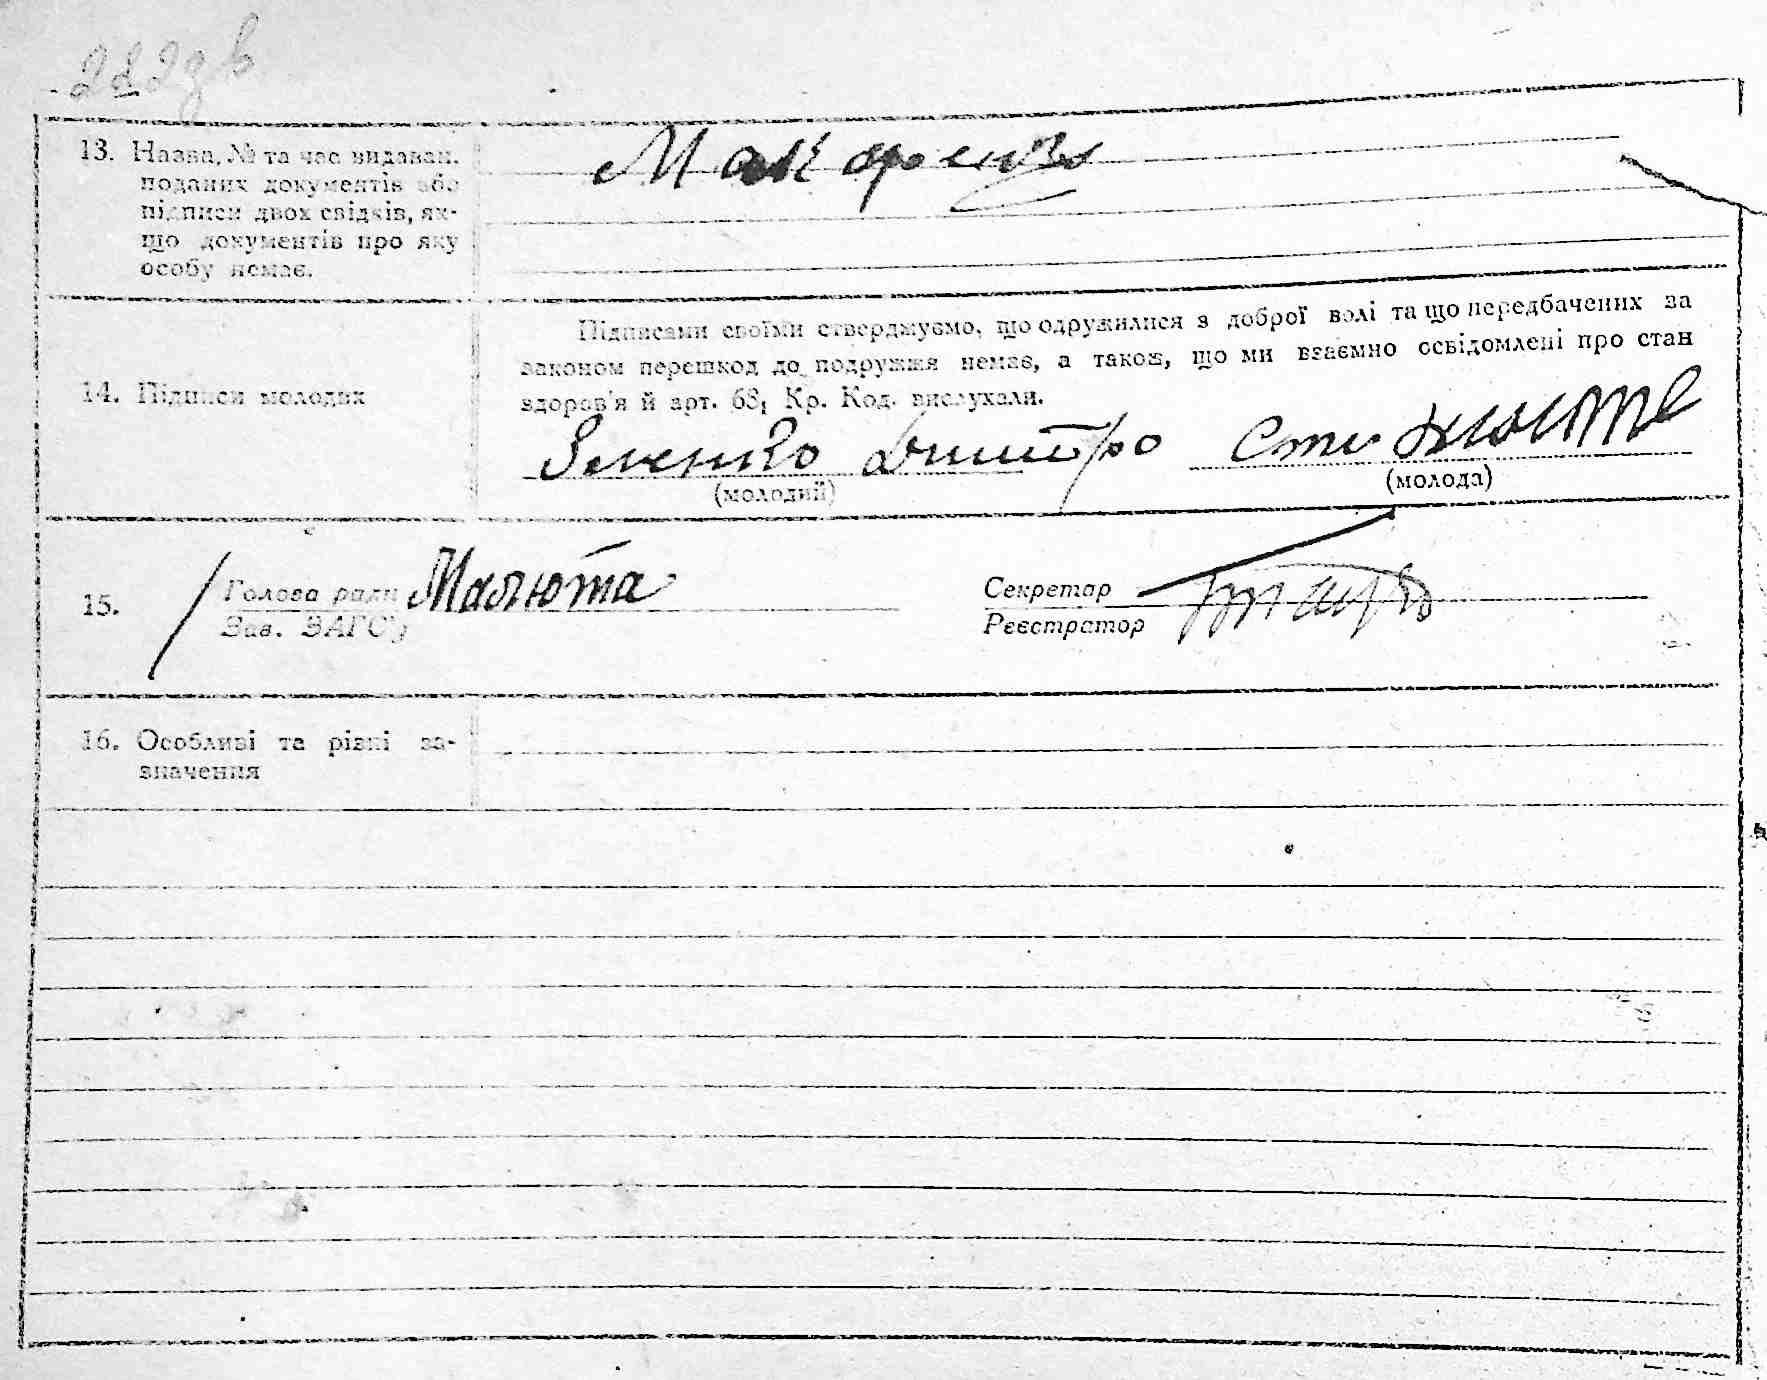 282 зв
13. Назва, № та час видаван.
поданих документів або
підписи двох свідків, як-
що документів про яку
особу немає.
Макаренко
Підписами своїми стверджуємо, що одружилися з доброї волі та що передбачених за
законом перешкод до подружжя немає, а також, що ми взаємно освідомлені про стан
здоров'я й арт. 68, Кр. Код. вислухали.
14. Підписи молодих
Зеленко Дмитро
(молодий)
(молода)
15.
Голова ради Малюта
Зав. ЗАГС'у
Секретар
Реєстратор
16. Особливі та різні за-
значення